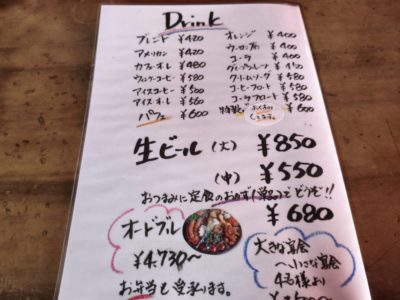 Drink
ブレンド ¥420
アメリカン ¥420
カフェ・オレ ¥480
ウィンナーコーヒー ¥580
アイスコーヒー ¥500
アイス・オレ ¥560
パフェ ¥600
オレンジ ¥400
ウーロン茶 ¥400
コーラ ¥400
グレープフルーツ ¥450
クリームソーダ ¥580
コーヒーフロート ¥580
コーラフロート ¥580
特製 ¥600
生ビール (大) ¥850
(中) ¥550
おつまみに定食のおかず(単品)でどうぞ!!
¥680
オードブル
¥4,730〜
お弁当も受承ります。
大きな宴会
〜小さな宴会
4名様より